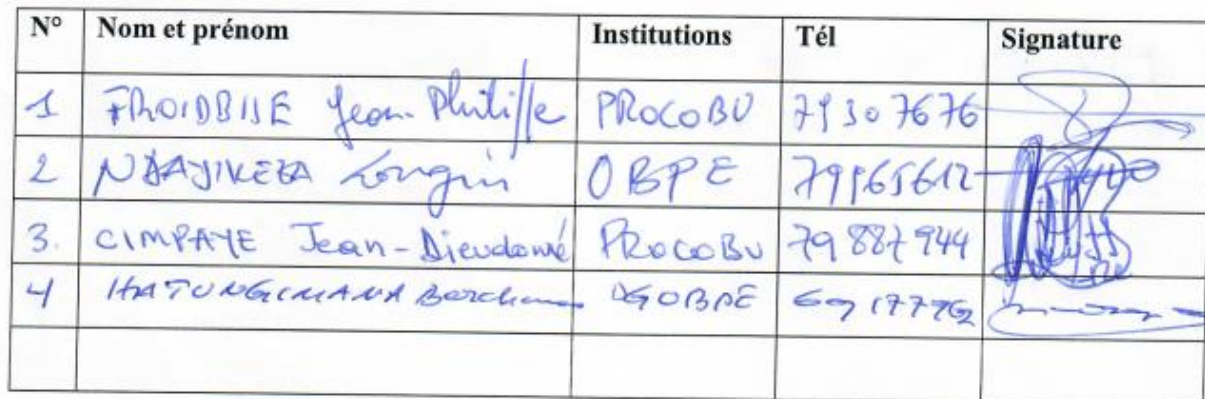 N° Nom et prénom Institutions Tél Signature
1 FROIDBISE Jean-Philippe PROCOBU 79307676
2 NDAYIKEZA Longin OBPE 79965612
3. CIMPAYE Jean-Dieudonné PROCOBU 79 887 944
4 HATUNGIMANA DGOBPE